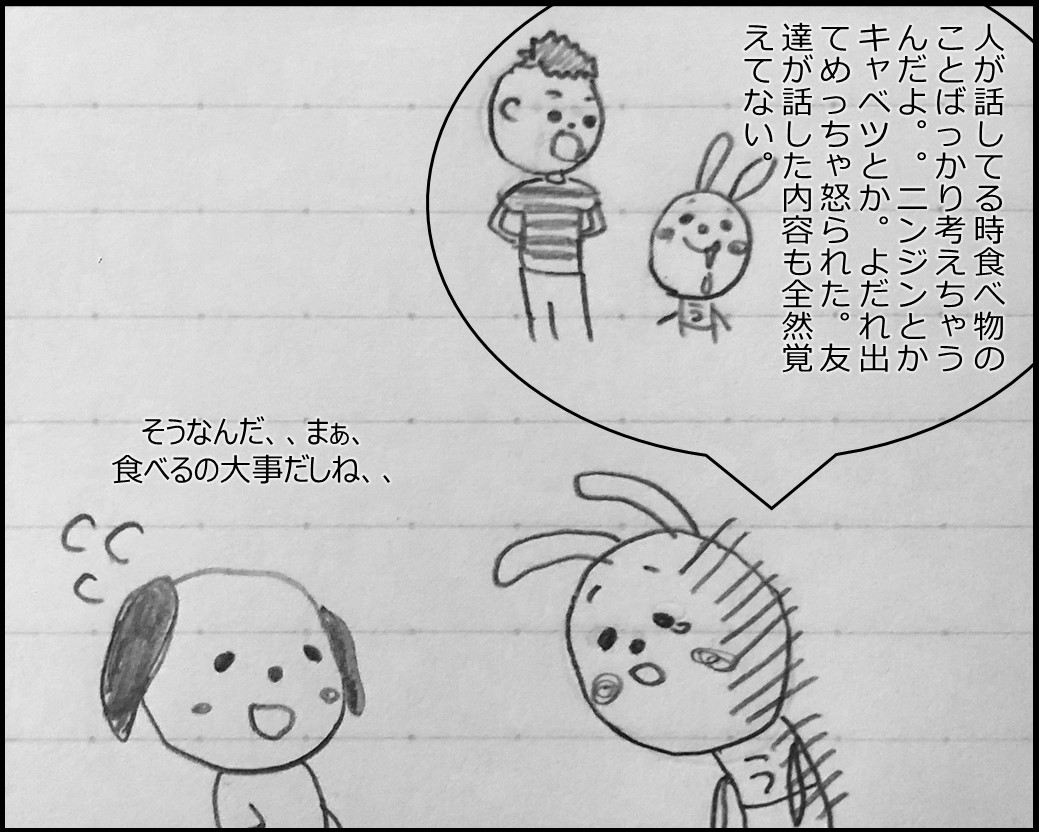 人が話してる時食べ物の
ことばっかり考えちゃう
んだよ。。ニンジンとか
キャベツとか。よだれ出
てめっちゃ怒られた。友
達が話した内容も全然覚
えてない。
う
そうなんだ、、まぁ、
食べるの大事だしね、、
う